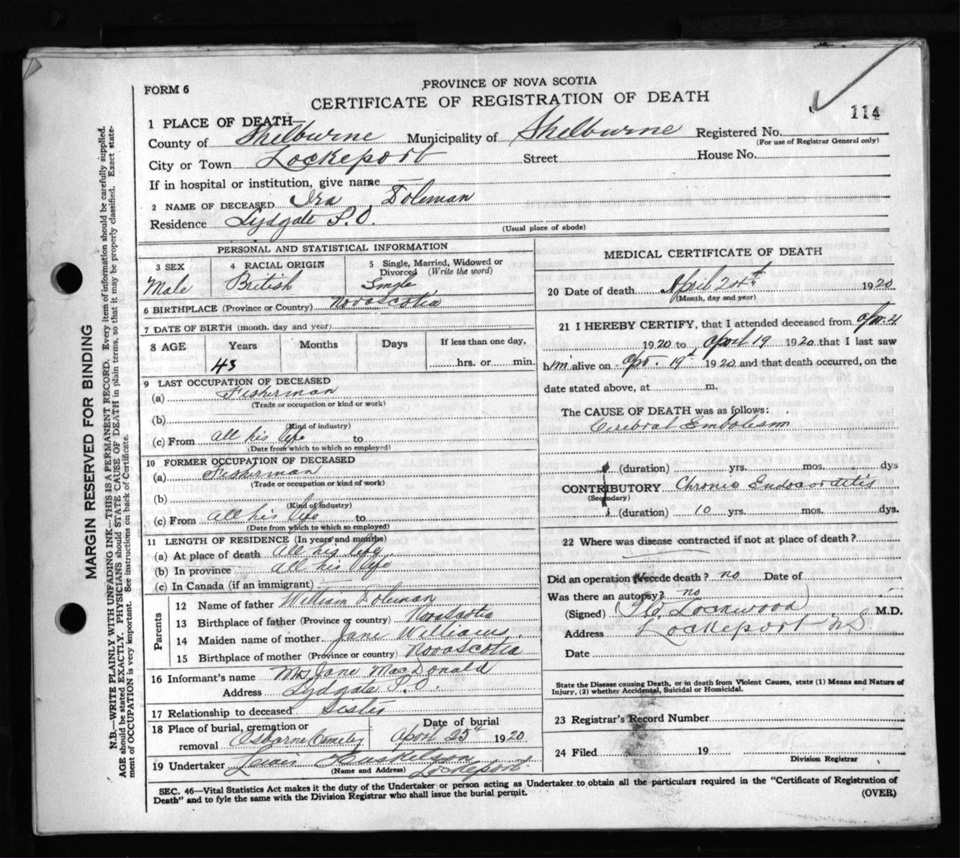 PROVINCE OF NOVA SCOTIA
FORM 6
CERTIFICATE OF REGISTRATION OF DEATH
114
1 PLACE OF DEATH
County of Shelburne Municipality of Shelburne Registered No.
(For use of Registrar General only)
City or Town Lockeport Street House No.
If in hospital or institution, give name
2 NAME OF DECEASED Ira Doleman
Residence Lydgate P.O.
(Usual place of abode)
PERSONAL AND STATISTICAL INFORMATION
3 SEX Male
4 RACIAL ORIGIN British
5 Single, Married, Widowed or Divorced (Write the word) Single
6 BIRTHPLACE (Province or Country) Nova Scotia
7 DATE OF BIRTH (month, day and year)
8 AGE Years Months Days If less than one day,
43 hrs. or min.
9 LAST OCCUPATION OF DECEASED
(a) Fisherman
(Trade or occupation or kind or work)
(b)
(Kind of industry)
(c) From all his life to
(Date from which to which so employed)
10 FORMER OCCUPATION OF DECEASED
(a) Fisherman
(Trade or occupation or kind of work)
(b)
(Kind of industry)
(c) From all his life to
(Date from which to which so employed)
11 LENGTH OF RESIDENCE (In years and months)
(a) At place of death all his life
(b) In province all his life
(c) In Canada (if an immigrant)
Parents
12 Name of father William Doleman
13 Birthplace of father (Province or country) Nova Scotia
14 Maiden name of mother Jane Williams
15 Birthplace of mother (Province or country) Nova Scotia
16 Informant's name Mrs Jane MacDonald
Address Lydgate P.O.
17 Relationship to deceased Sister
18 Place of burial, cremation or removal Osborne Cemetery
Date of burial April 25th 1920
19 Undertaker Lockeport
(Name and Address)
MEDICAL CERTIFICATE OF DEATH
20 Date of death April 24th 1920
(Month, day and year)
21 I HEREBY CERTIFY, that I attended deceased from Apr. 4
1920 to April 19 1920 that I last saw
him alive on Apr. 19th 1920 and that death occurred, on the
date stated above, at m.
The CAUSE OF DEATH was as follows:
Cerebral Embolism
(duration) yrs. mos. dys
CONTRIBUTORY Chronic Endocarditis
(Secondary)
(duration) 10 yrs. mos. dys.
22 Where was disease contracted if not at place of death?
Did an operation precede death? no Date of
Was there an autopsy? no
(Signed) Lockwood M.D.
Address Lockeport NS
Date
State the Disease causing Death, or in death from Violent Causes, state (1) Means and Nature of
Injury, (2) whether Accidental, Suicidal or Homicidal.
23 Registrar's Record Number
24 Filed 19
Division Registrar
SEC. 46—Vital Statistics Act makes it the duty of the Undertaker or person acting as Undertaker to obtain all the particulars required in the "Certificate of Registration of
Death" and to fyle the same with the Division Registrar who shall issue the burial permit. (OVER)
MARGIN RESERVED FOR BINDING
N.B.—WRITE PLAINLY WITH UNFADING INK—THIS IS A PERMANENT RECORD. Every item of information should be carefully supplied.
AGE should be stated EXACTLY. PHYSICIANS should STATE CAUSE OF DEATH in plain terms, so that it may be properly classified. Exact state-
ment of OCCUPATION is very important. See instructions on back of Certificate.